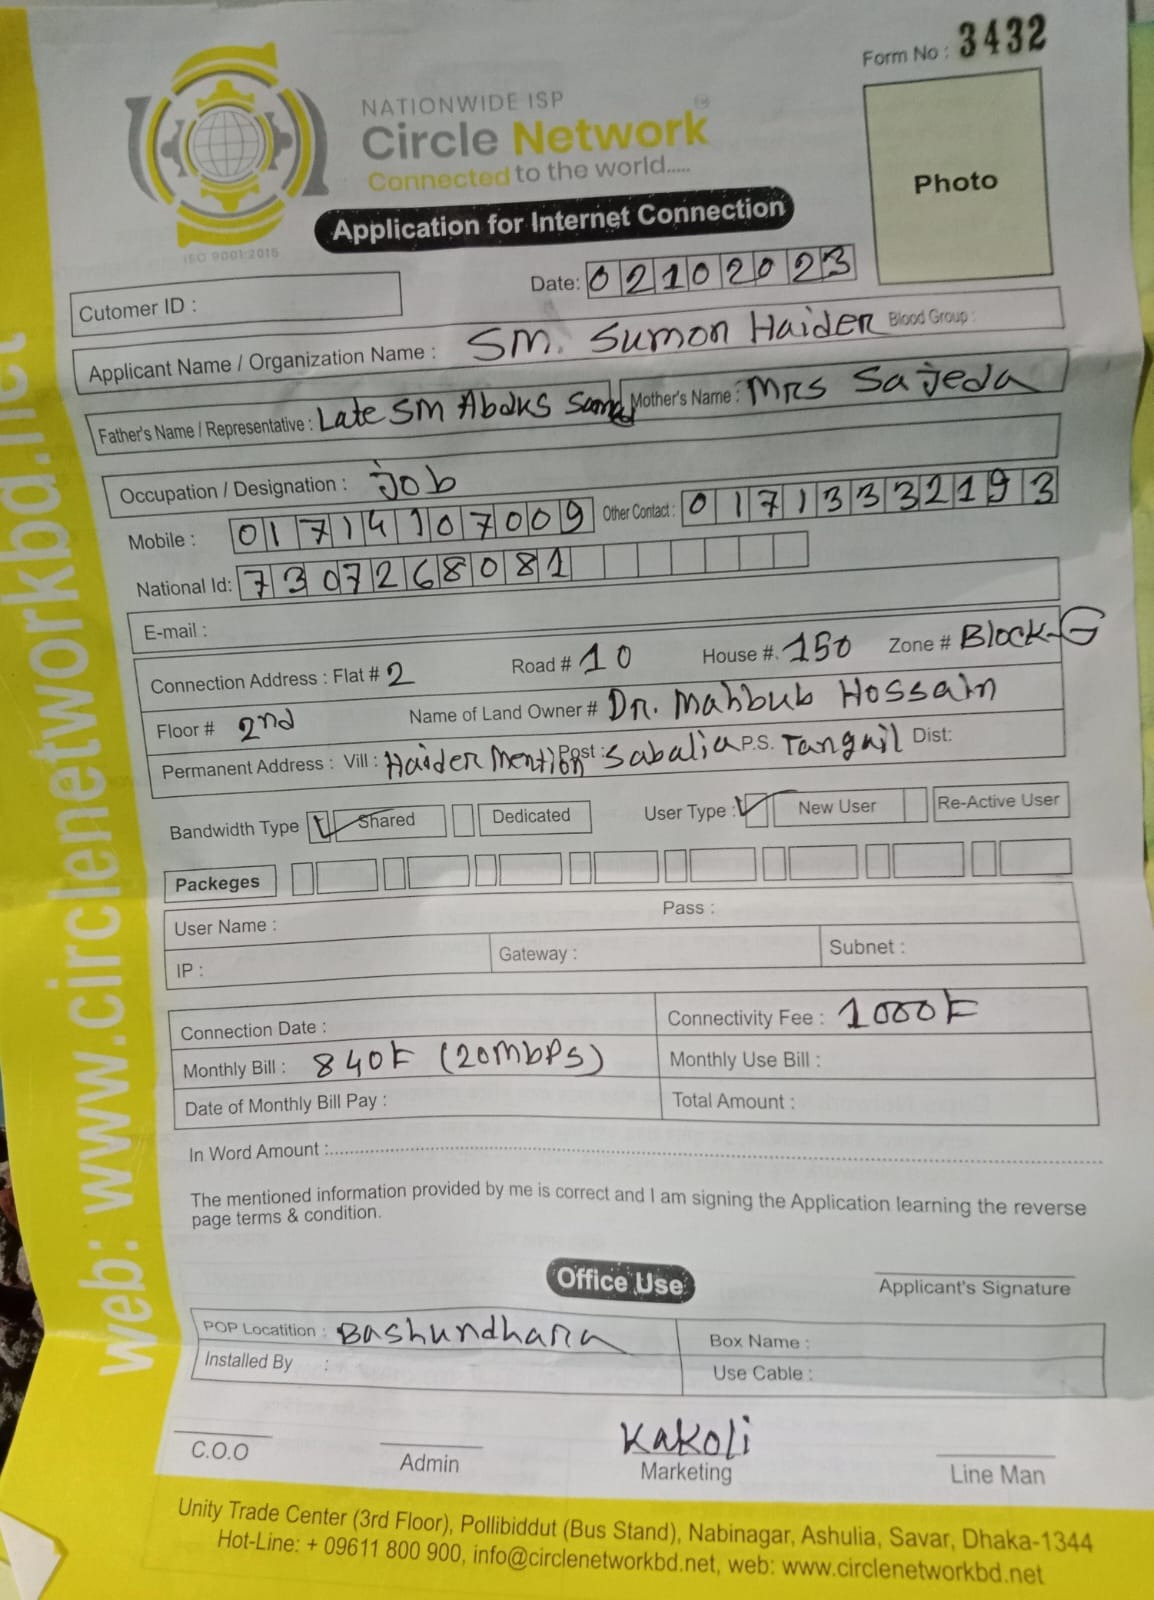 Form No : 3432
NATIONWIDE ISP
Circle Network
Connected to the world.....
ISO 9001:2015
Photo
Application for Internet Connection
Date: 02102023
Cutomer ID :
Applicant Name / Organization Name : SM. Sumon Haider Blood Group :
Father's Name / Representative : Late SM Abdus Mother's Name : Mrs Sajeda
Occupation / Designation : Job
Mobile : 01714107009 Other Contact : 01713332193
National Id: 7307268081
E-mail :
Connection Address : Flat # 2 Road # 10 House #. 150 Zone # Block-G
Floor # 2nd Name of Land Owner # Dr. Mahbub Hossain
Permanent Address : Vill : Haider Mention Post : Sabalia P.S. Tangail Dist:
Bandwidth Type Shared Dedicated User Type : New User Re-Active User
Packeges
User Name : Pass :
IP : Gateway : Subnet :
Connection Date : Connectivity Fee : 1000
Monthly Bill : 840 (20Mbps) Monthly Use Bill :
Date of Monthly Bill Pay : Total Amount :
In Word Amount :
The mentioned information provided by me is correct and I am signing the Application learning the reverse
page terms & condition.
Office Use
Applicant's Signature
POP Locatition : Bashundhara Box Name :
Installed By : Use Cable :
Kakoli
C.O.O Admin Marketing Line Man
Unity Trade Center (3rd Floor), Pollibiddut (Bus Stand), Nabinagar, Ashulia, Savar, Dhaka-1344
Hot-Line: + 09611 800 900, info@circlenetworkbd.net, web: www.circlenetworkbd.net
web: www.circlenetworkbd.net